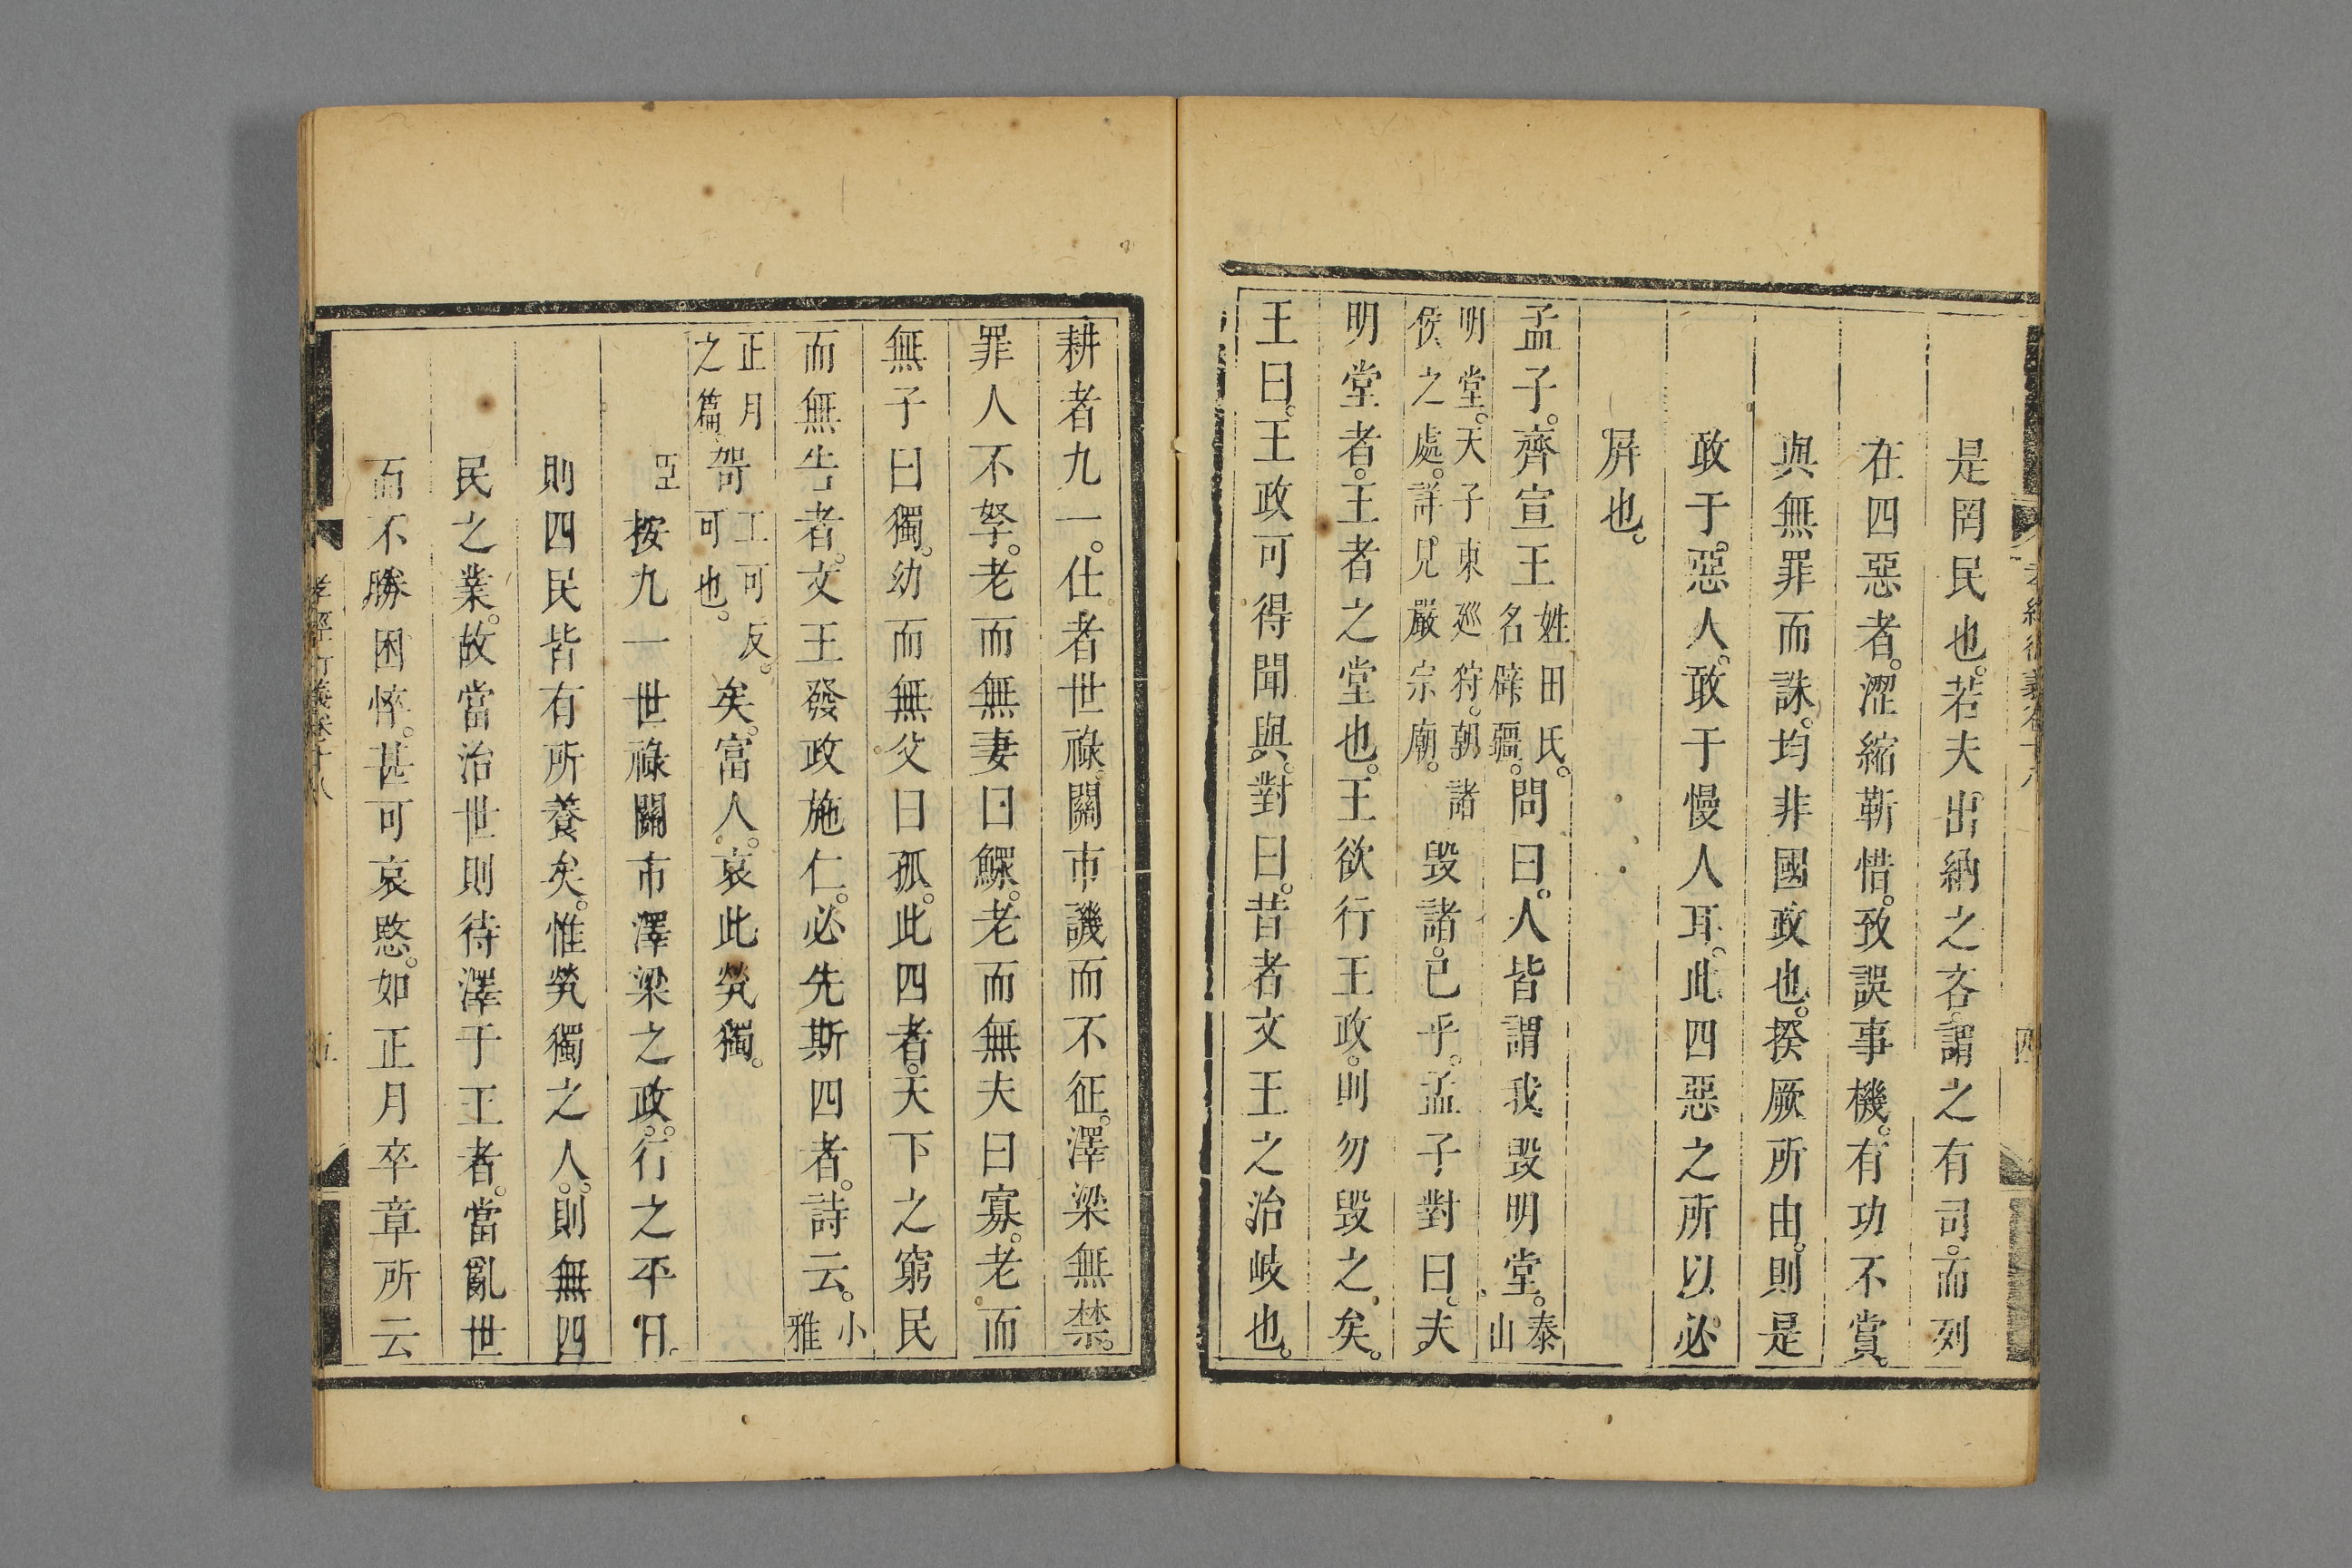 孝經衍義卷十八 四
是罔民也。若夫出納之吝。謂之有司。而列
在四惡者。澀縮靳惜。致誤事機。有功不賞。
與無罪而誅。均非國政也。揆厥所由。則是
敢于惡人。敢于慢人耳。此四惡之所以必
屏也。
孟子。齊宣王姓田氏。名辟疆。問曰。人皆謂我毀明堂。泰山
明堂。天子東廵狩。朝諸侯之處。詳見嚴宗廟。毀諸。已乎。孟子對曰。夫
明堂者。王者之堂也。王欲行王政。則勿毀之矣。
王曰。王政可得聞與。對曰。昔者文王之治岐也。
耕者九一。仕者世祿。關市譏而不征。澤梁無禁。
罪人不孥。老而無妻曰鰥。老而無夫曰寡。老而
無子曰獨。幼而無父曰孤。此四者。天下之窮民
而無告者。文王發政施仁。必先斯四者。詩云。小雅
正月之篇。哿工可反。可也。矣。富人。哀此煢獨。
臣按九一世祿關市澤梁之政。行之平日。
則四民皆有所養矣。惟煢獨之人。則無四
民之業。故當治世則待澤于王者。當亂世
而不勝困悴。甚可哀愍。如正月卒章所云
孝經衍義卷十八 五